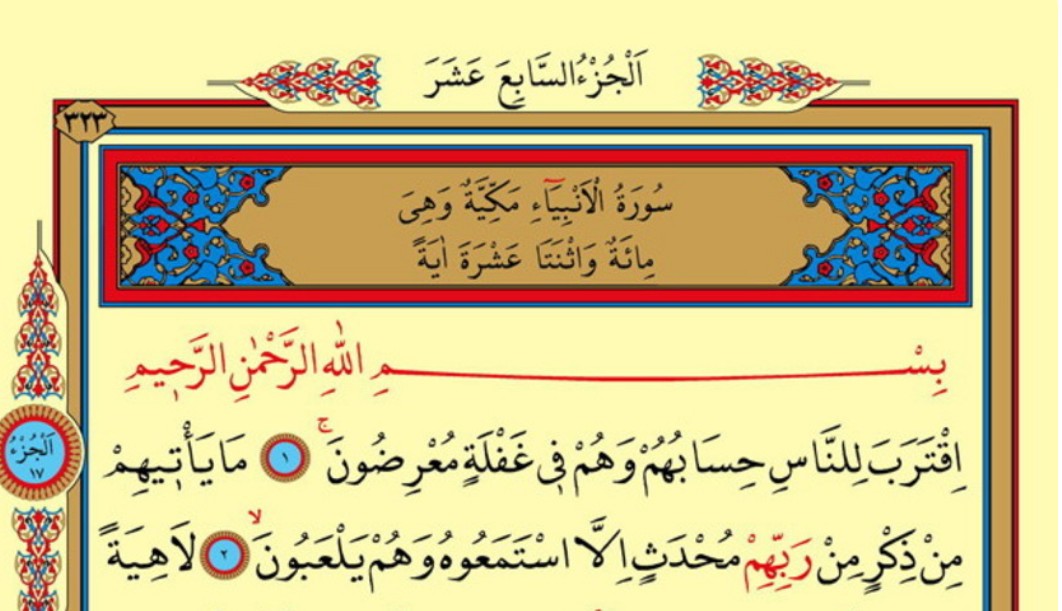 اَلْجُزْءُ السَّابِعَ عَشَرَ
٣٢٣
سُورَةُ الْاَنْبِيَٓاءِ مَكِّيَّةٌ وَهِىَ
مِائَةٌ وَاثْنَتَا عَشْرَةَ اٰيَةً
بِسْمِ اللّٰهِ الرَّحْمٰنِ الرَّحٖيمِ
اِقْتَرَبَ لِلنَّاسِ حِسَابُهُمْ وَهُمْ فٖى غَفْلَةٍ مُعْرِضُونَۚ ١ مَا يَأْتٖيهِمْ
اَلْجُزْءُ
١٧
مِنْ ذِكْرٍ مِنْ رَبِّهِمْ مُحْدَثٍ اِلَّا اسْتَمَعُوهُ وَهُمْ يَلْعَبُونَۙ ٢ لَاهِيَةً